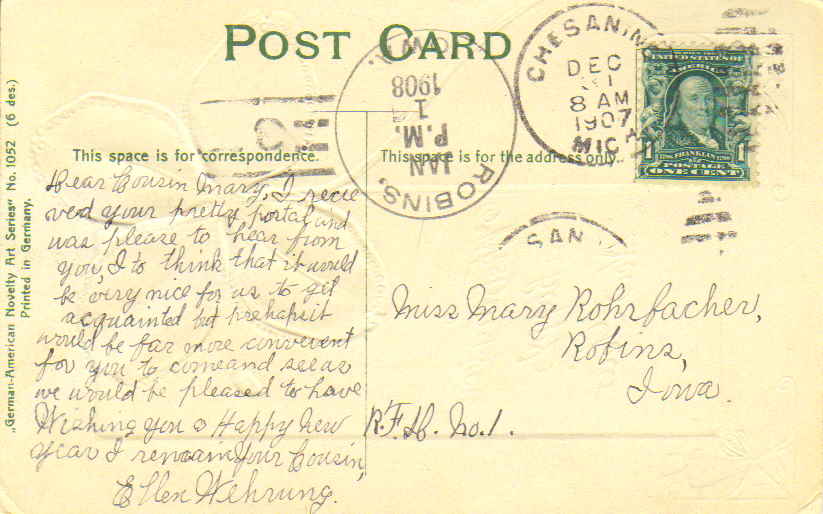 POST CARD
CHESANING
DEC
31
8 AM
1907
MICH
ROBINS,
IOWA.
JAN
1
P.M.
1908
UNITED STATES OF
AMERICA
FRANKLIN
POSTAGE
1 ONE CENT 1
SAN
This space is for correspondence.
This space is for the address only.
„German-American Novelty Art Series" No. 1052 (6 des.)
Printed in Germany.
Dear Cousin Mary, I recie
ved your pretty portal and
was please to hear from
you, I to think that it would
be very nice for us to get
acquainted but prehaps it
would be far more convenent
for you to come and see us
we would be pleased to have
Wishing you a Happy New
year I remain Your Cousin,
Ellen Wehrung.
Miss Mary Rohrbacher,
Robins,
Iowa.
R.F.D. No. 1.